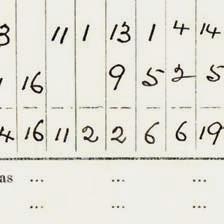 3 11 1 13 1 4 14
16 9 5 2 5
4 16 11 2 2 6 6 19
as ... ... ...
... ... ...